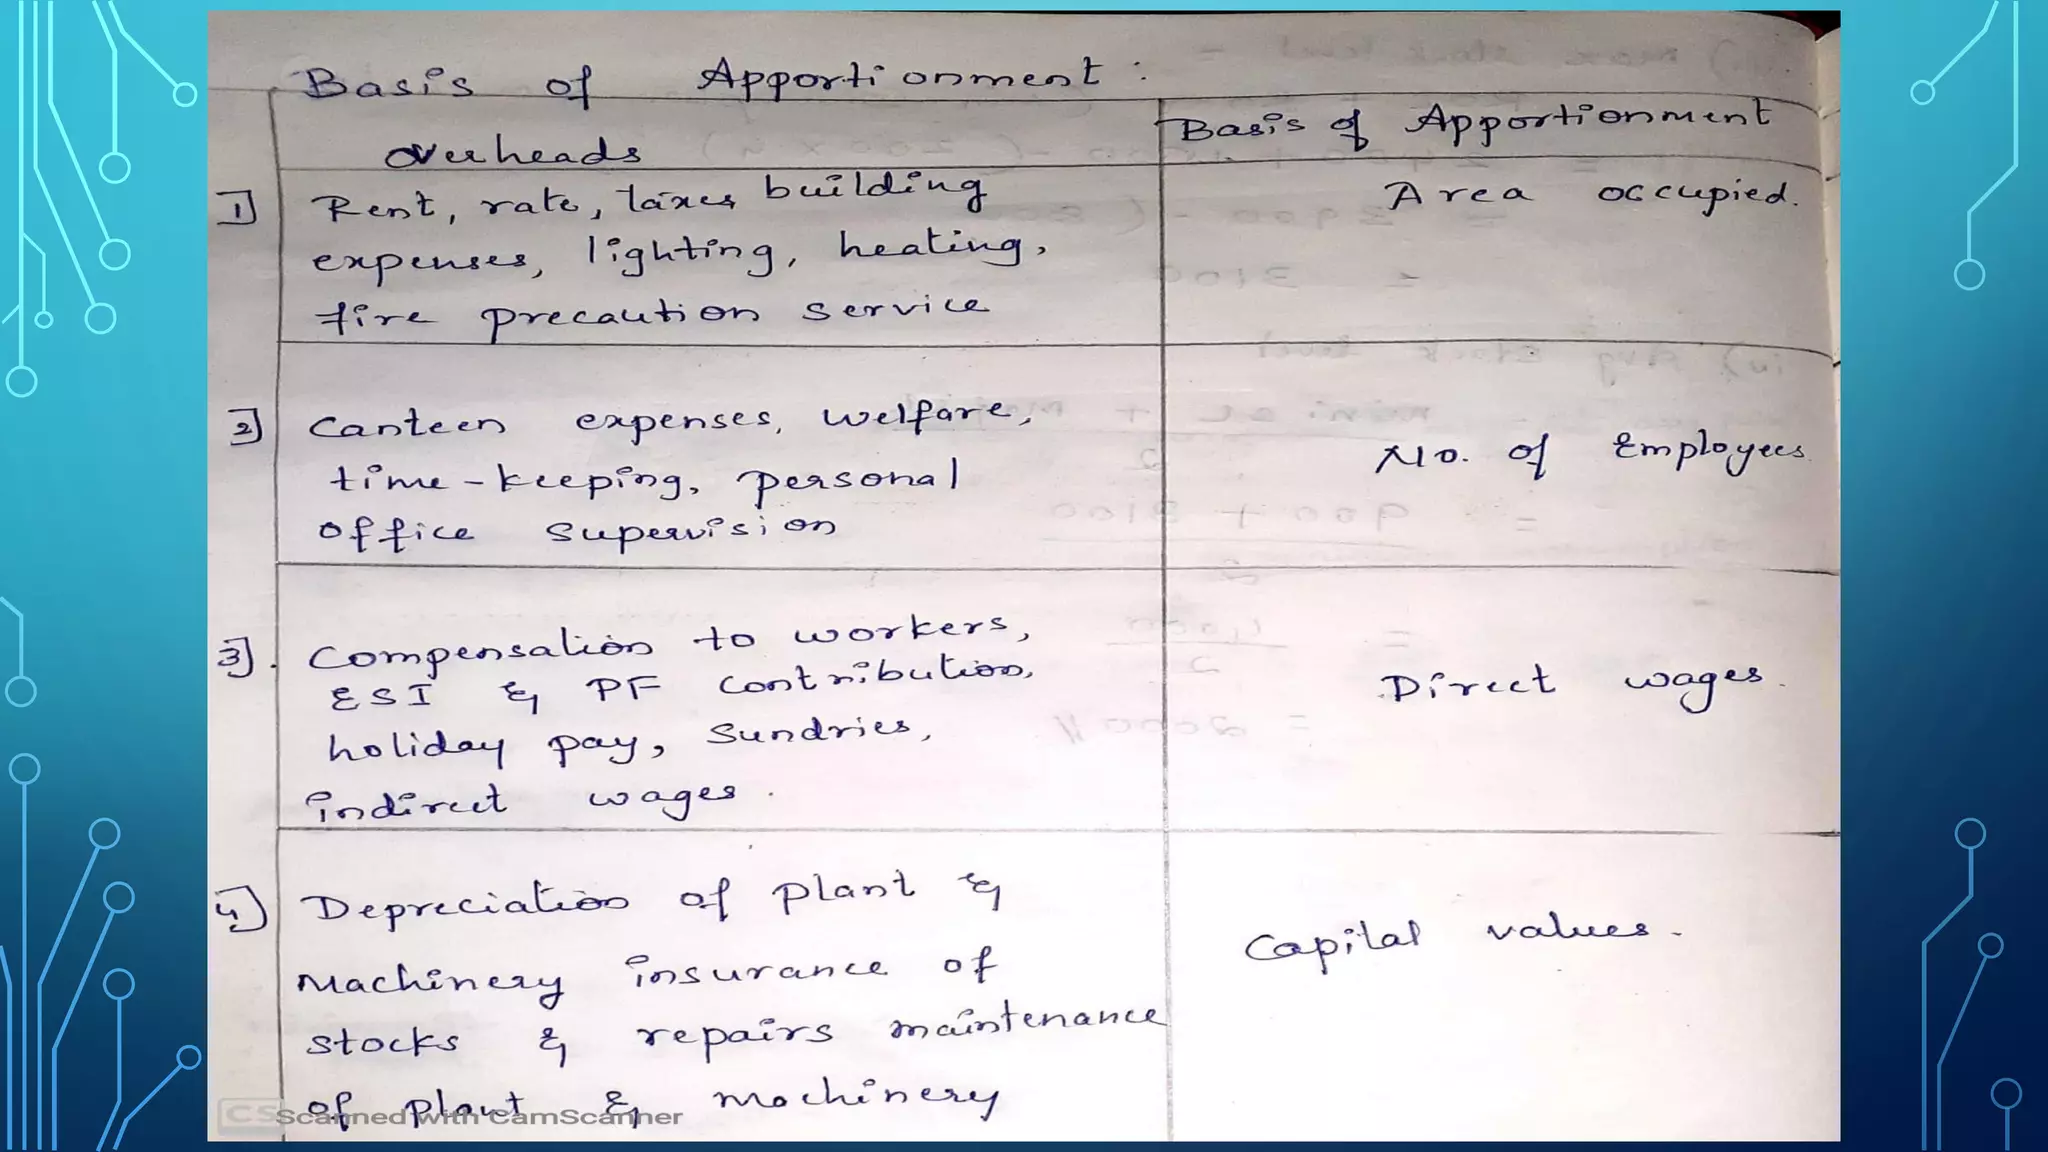 Basis of Apportionment :
overheads
Basis of Apportionment
1] Rent, rate, taxes building
expenses, lighting, heating,
fire precaution service
Area occupied.
2] Canteen expenses, welfare,
time-keeping, personal
office supervision
No. of Employees
3]. Compensation to workers,
ESI & PF contribution,
holiday pay, Sundries,
indirect wages.
Direct wages.
4] Depreciation of plant &
Machinery insurance of
stocks & repairs maintenance
of plant & machinery
Capital values.
CS Scanned with CamScanner